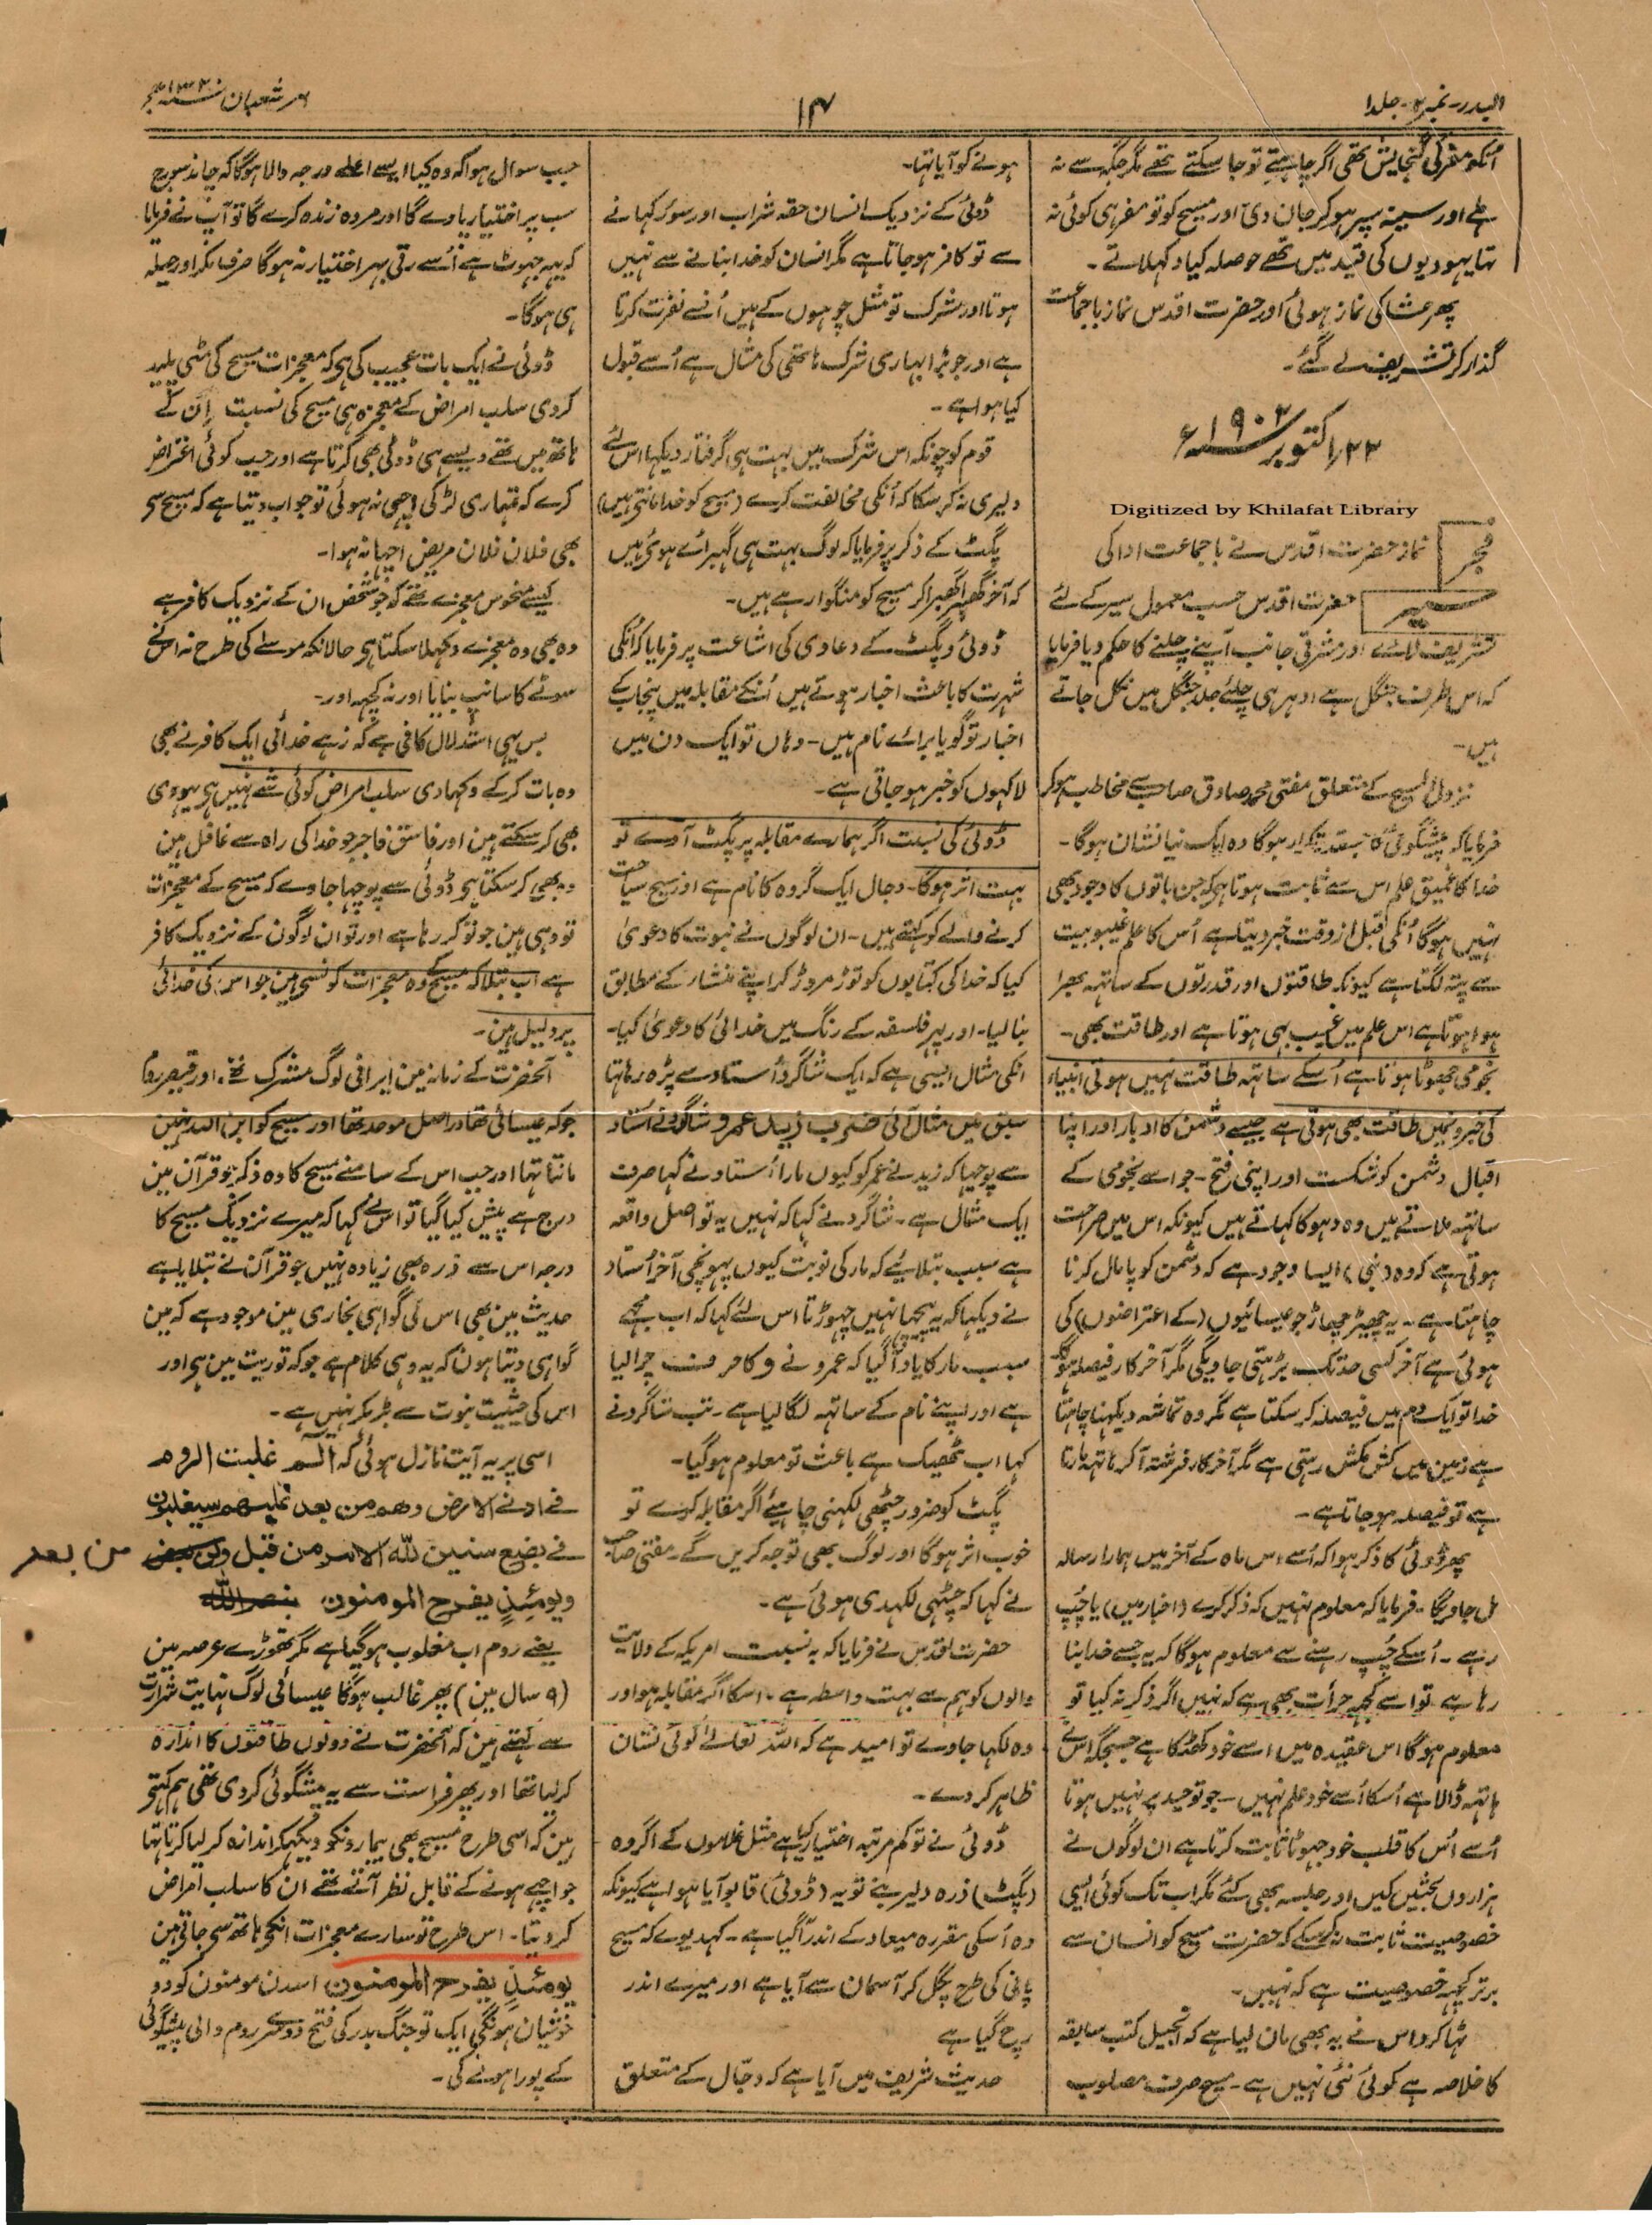 البدر۔ نمبر ۲۔ جلد ۱
۱۴
شعبان ۱۳۲۰ ہجر
انکو مفر کی گنجایش تھی اگر چاہتے تو جا سکتے تھے مگر جگہ سے نہ
ہلے اور سینہ سپر ہوکر جان دی اور مسیح کو تو مفر ہی کوئی نہ
تہا یہودیوں کی قید میں تھے حوصلہ کیا دکہلاتے۔
پھر عشا کی نماز ہوئی اور حضرت اقدس نماز باجماعت
گذار کر تشریف لے گئے۔
۲۲؍ اکتوبر ۱۹۰۲ء
Digitized by Khilafat Library
فجر
نماز حضرت اقدس نے باجماعت ادا کی
سیر
حضرت اقدس حسب معمول سیر کے لئے
تشریف لائے اور مشرقی جانب آپنے چلنے کا حکم دیا فرمایا
کہ اس طرف جنگل ہے ادہر ہی چلئے جلد جنگل میں نکل جاتے
ہیں۔
نزول المسیح کے متعلق مفتی محمد صادق صاحب سے مخاطب ہوکر
فرمایا کہ پیشگوئی کا جسقدر تکرار ہوگا وہ ایک نیا نشان ہوگا۔
خدا کا عمیق علم اس سے ثابت ہوتا ہے کہ جن باتوں کا وجود بھی
نہیں ہوگا اُنکی قبل از وقت خبر دیتا ہے اُس کا علم غیبوبیت
سے پتہ لگتا ہے کیونکہ طاقتوں اور قدرتوں کے ساتہہ بھرا
ہوا ہوتا ہے اس علم میں غیب بہی ہوتا ہے اور طاقت بھی۔
نجومی جھوٹا ہوتا ہے اُسکے ساتہہ طاقت نہیں ہوتی انبیاء
کی خبرونمیں طاقت بھی ہوتی ہے جیسے دشمن کا ادبار اور اپنا
اقبال دشمن کو شکست اور اپنی فتح۔ جو اسے نجومی کے
ساتہہ ملاتے ہیں وہ دہوکا کہاتے ہیں کیونکہ اس میں صراحت
ہوتی ہے کہ وہ (نبی) ایسا وجود ہے کہ دشمن کو پامال کرنا
چاہتا ہے۔ یہ چھیڑ چھاڑ جو عیسائیوں (کے اعتراضوں) کی
ہوئی ہے آخر کسی حد تک بڑہتی جاویگی مگر آخر کار فیصلہ ہوگا
خدا تو ایک دم میں فیصلہ کر سکتا ہے مگر وہ تماشہ دیکہنا چاہتا
ہے زمین میں کش مکش رہتی ہے مگر آخر کار فرشتہ آکر ہاتہہ مارتا
ہے تو فیصلہ ہو جاتا ہے۔
پھر ڈوئی کا ذکر ہوا کہ اُسے اس ماہ کے آخر میں ہمارا رسالہ
مل جاویگا۔ فرمایا کہ معلوم نہیں کہ ذکر کرے (اخبار میں) یا چُپ
رہے۔ اُسکے چُپ رہنے سے معلوم ہوگا کہ یہ جسے خدا بنا
رہا ہے تو اسے کچہہ جرأت بھی ہے کہ نہیں اگر ذکر نہ کیا تو
معلوم ہوگا اس عقیدہ میں اسے خود کھٹکا ہے جس جگہ اس نے
ہاتہہ ڈالا ہے اُسکا اُسے خود علم نہیں۔ جو توحید پر نہیں ہوتا
اُسے اُس کا قلب خود جہوٹا ثابت کرتا ہے ان لوگوں نے
ہزاروں بحثیں کیں اور جلسے بھی کئے مگر اب تک کوئی ایسی
خصوصیت ثابت نہ کرسکے کہ حضرت مسیح کو انسان سے
برتر کچہہ خصوصیت ہے کہ نہیں۔
ٹہاکر داس نے یہ بھی مان لیا ہے کہ انجیل کتب سابقہ
کا خلاصہ ہے کوئی نئی نہیں ہے۔ مسیح صرف مصلوب
ہونے کو آیا تہا۔
ڈوئی کے نزدیک انسان حقہ شراب اور سور کہانے
سے تو کافر ہو جاتا ہے مگر انسان کو خدا بنانے سے نہیں
ہوتا اور مشرک تو مثل چوہوں کے ہیں اُنسے نفرت کرتا
ہے اور جو بڑا بہاری شرک ہاتھی کی مثال ہے اُسے قبول
کیا ہوا ہے۔
قوم کو چونکہ اس شرک میں بہت ہی گرفتار دیکہا اس لئے
دلیری نہ کرسکا کہ اُنکی مخالفت کرے (مسیح کو خدا مانتی ہیں)
پگٹ کے ذکر پر فرمایا کہ لوگ بہت ہی گہبرائے ہوئے ہیں
کہ آخر گھبرا گھبرا کر مسیح کو منگوا رہے ہیں۔
ڈوئی و پگٹ کے دعاوی کی اشاعت پر فرمایا کہ اُنکی
شہرت کا باعث اخبار ہوتے ہیں اُنکے مقابلہ میں پنجاب کے
اخبار تو گویا برائے نام ہیں۔ وہاں تو ایک دن میں
لاکہوں کو خبر ہو جاتی ہے۔
ڈوئی کی نسبت اگر ہمارے مقابلہ پر پگٹ آوے تو
بہت اثر ہوگا۔ دجال ایک گروہ کا نام ہے اور مسیح سیاحت
کرنے والے کو کہتے ہیں۔ ان لوگوں نے نبوت کا دعویٰ
کیا کہ خدا کی کتابوں کو توڑ مروڑ کر اپنے منشار کے مطابق
بنا لیا۔ اور پہر فلسفہ کے رنگ میں خدائی کا دعویٰ کیا۔
انکی مثال ایسی ہے کہ ایک شاگرد اُستاد سے پڑہ رہا تہا
سبق میں مثال آئی ضرب زید عمرو شاگرد نے اُستاد
سے پوچہا کہ زید نے عمر کو کیوں مارا اُستاد نے کہا صرف
ایک مثال ہے۔ شاگرد نے کہا کہ نہیں یہ تو اصل واقعہ
ہے سبب بتلائیے کہ مار کی نوبت کیوں پہونچی آخر اُستاد
نے دیکہا کہ یہ پیچہا نہیں چہوڑتا اس لئے کہا کہ اب مجھے
سبب مار کا یاد آگیا کہ عمرو نے و کا حرف چرا لیا
ہے اور اپنے نام کے ساتہہ لگا لیا ہے۔ تب شاگرد نے
کہا اب ٹھیک ہے باعث تو معلوم ہوگیا۔
پگٹ کو ضرور چٹھی لکہنی چاہیے اگر مقابلہ کرے تو
خوب اثر ہوگا اور لوگ بھی توجہ کریں گے۔ مفتی صاحب
نے کہا کہ چٹہی لکہدی ہوئی ہے۔
حضرت اقدس نے فرمایا کہ بہ نسبت امریکہ کے ولایت
والوں کو ہم سے بہت واسطہ ہے۔ اسکا اگر مقابلہ ہو اور
وہ لکہا جاوے تو امید ہے کہ اللہ تعالےٰ کوئی نشان
ظاہر کر دے۔
ڈوئی نے تو کم مرتبہ اختیار کیا ہے مثل غلاموں کے اگر وہ
(پگٹ) ذرہ دلیر بنے تو یہ (ڈوئی) قابو آیا ہوا ہے کیونکہ
وہ اُسکی مقررہ میعاد کے اندر آگیا ہے۔ کہدیوے کہ مسیح
پانی کی طرح پگل کر آسمان سے آیا ہے اور میرے اندر
رچ گیا ہے
حدیث شریف میں آیا ہے کہ دجّال کے متعلق
جب سوال ہوا کہ وہ کیا ایسے اعلے درجہ والا ہوگا کہ چاند سورج
سب پر اختیار پاوے گا اور مردہ زندہ کرے گا تو آپ نے فرمایا
کہ یہہ جہوٹ ہے اُسے رتی بہر اختیار نہ ہوگا صرف مکر اور حیلہ
ہی ہوگا۔
ڈوئی نے ایک بات عجیب کی ہے کہ معجزات مسیح کی مٹی پلید
کر دی سلب امراض کے معجزہ ہی مسیح کی نسبت اِن کے
ہاتھ میں تھے ویسے ہی ڈوئی بھی کرتا ہے اور جب کوئی اعتراض
کرے کہ تمہاری لڑکی اچھی نہ ہوئی تو جواب دیتا ہے کہ مسیح سے
بھی فلان فلان مریض اچہا نہ ہوا۔
کیسے منحوس معجزے تھے کہ جو شخص ان کے نزدیک کافر ہے
وہ بھی وہ معجزے دکہلا سکتا ہے حالانکہ موسےٰ کی طرح نہ اس نے
سوٹے کا سانپ بنایا اور نہ کچہہ اور۔
بس یہی استدلال کافی ہے کہ زہے خدائی ایک کافر نے بھی
وہ بات کرکے دکہادی سلب امراض کوئی شے نہیں ہے یہودی
بھی کر سکتے ہیں اور فاسق فاجر جو خدا کی راہ سے غافل ہین
وہ بھی کر سکتا ہے ڈوئی سے پوچہا جاوے کہ مسیح کے معجزات
تو وہی ہین جو تو کر رہا ہے اور تو ان لوگون کے نزدیک کافر
ہے اب بتلا کہ مسیح کے وہ معجزات کونسے ہین جو اس کی خدائی
پر دلیل ہین۔
آنحضرت کے زمانہ مین ایرانی لوگ مشرک تھے اور قیصر روم
جو کہ عیسائی تہا در اصل موحد تہا اور مسیح کو ابن اللہ نہین
مانتا تہا اور جب اس کے سامنے مسیح کا وہ ذکر جو قرآن مین
درج ہے پیش کیا گیا تو اس نے کہا کہ میرے نزدیک مسیح کا
درجہ اس سے ذرہ بھی زیادہ نہیں جو قرآن نے بتلایا ہے
حدیث مین بھی اس کی گواہی بخاری مین موجود ہے کہ مین
گواہی دیتا ہون کہ یہ وہی کلام ہے جو کہ توریت مین ہے اور
اس کی حیثیت نبوت سے بڑہکر نہین ہے۔
اسی پر یہ آیت نازل ہوئی کہ الٓم غلبت الروم
فے ادنے الارض وهم من بعد غلبهم سيغلبون
فے بضع سنين للہ الامر من قبل ومن بعد
من بعد
ويومئذ يفرح المومنون بنصر اللہ
یعنے روم اب مغلوب ہوگیا ہے مگر تھوڑے عرصہ مین
(۹ سال مین) پھر غالب ہوگا عیسائی لوگ نہایت شرارت
سے کہتے ہین کہ آنحضرت نے دونوں طاقتوں کا اندازہ
کر لیا تھا اور پھر فراست سے یہ پیشگوئی کر دی تھی ہم کہتے
ہین کہ اسی طرح مسیح بھی بیمارونکو دیکھکر اندازہ کر لیا کرتا تہا
جو اچھے ہونے کے قابل نظر آتے تھے ان کا سلب امراض
کر دیتا۔ اس طرح تو سارے معجزات انکے ہاتھ سے جاتے ہین
يومئذ يفرح المومنون اسدن مومنون کو دو
خوشیان ہونگی ایک تو جنگ بدر کی فتح دوسرے روم والی پیشگوئی
کے پورا ہونے کی۔